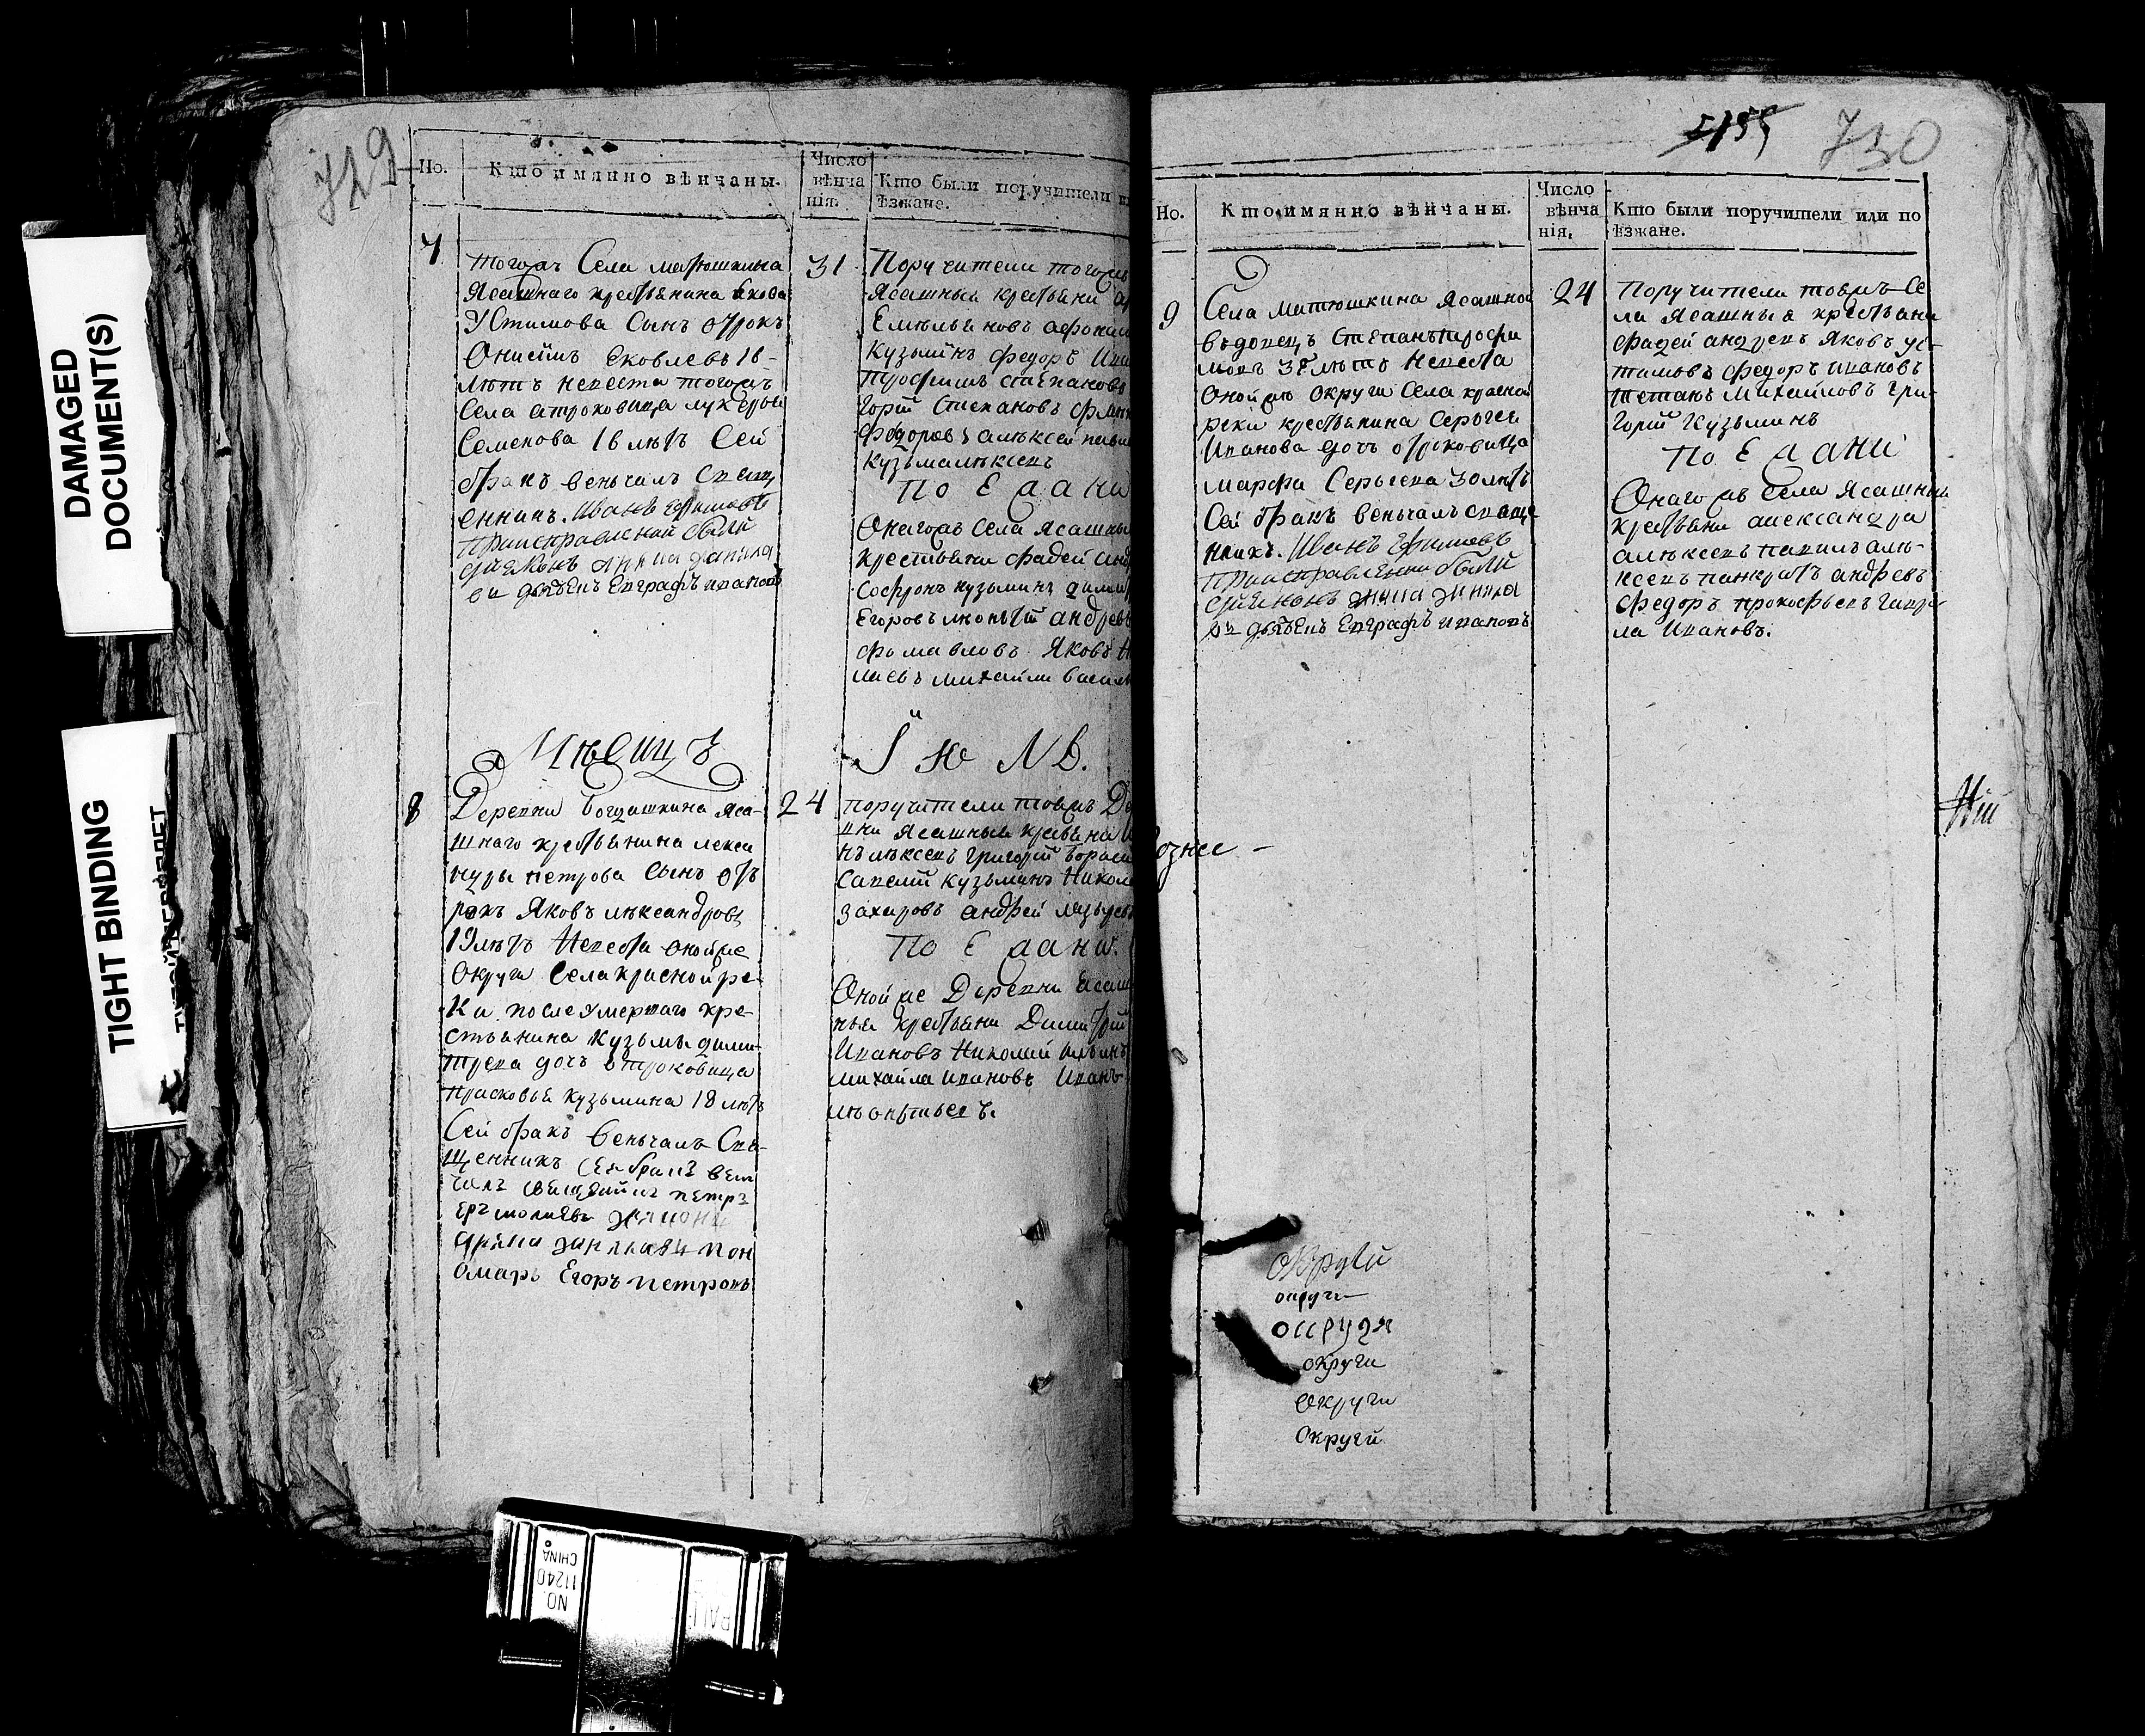 DAMAGED
DOCUMENT(S)
TIGHT BINDING
729
Но.
Кто имянно вѣнчаны.
Число
вѣнча
нія.
Кто были поручители
ѣзжане.
7
тогожъ Села матюшкина
Ясашнаго крестьянина Якова
Устимова Сынъ отрокъ
Онисимъ Яковлевъ 18
лѣтъ невеста тогожъ
Села отроковица лукерья
Семенова 16 лѣтъ Сей
бракъ веньчалъ Свящ
енникъ. Иванъ Ефимовъ
При исправленіи были
дьячекъ Евграфъ ивановъ
31
Поручители тогожъ
Ясашныя крестьяни
Емельяновъ афонасі
Кузьминъ федоръ Ива
трофимъ степановъ
горій Степановъ
Федоровъ алексей
Кузьма алексеевъ
По Е з ж а н и
Онагожъ Села Ясашны
крестьяни фадей анд
Софронъ кузьминъ
Егоровъ леонтій андревъ
Яковъ
михайли василь
Мѣсицъ
Іюль.
8
Деревни богдашкина яса-
шнаго крестьянина алекса
ндры петрова Сынъ от
рокъ Яковъ александровъ
19 лѣтъ Невеста онойже
Округи Села красной ре-
ки послеумершаго кре-
стьянина Кузьмы дими-
трева дочь отроковица
Прасковья Кузьмина 18 лѣтъ
Сей бракъ веньчалъ Свя-
щенникъ Сей бракъ вен
чалъ Священикъ петръ
Ермолаевъ
пон
омарь Егоръ петровъ
24
поручители тояжъ Де
вни Ясашныя крестьяна
Григорій борисо
Савелій Кузьминъ Никола
захаровъ андрей
По Е з ж а н и.
Оной же Деревни Ясаш
ныя крестьяни Димитрій
Ивановъ Николай Ильинъ
Михайла Ивановъ Иванъ
леонтьевъ.
5155
730
Но.
Кто имянно вѣнчаны.
Число
вѣнча
нія.
Кто были поручители или по
ѣзжане.
9
Села Матюшкина Ясашной
вьдовецъ Степанъ трофи
мовъ 37 лѣтъ Невеста
Онойже округи Села красной
реки крестьянина Серьгея
Иванова дочь отроковица
Марфа Серьгева 30 лѣтъ
Сей бракъ веньчалъ Свяще
нникъ. Иванъ Ефимовъ
При исправлении были
дьячекъ Евграфъ ивановъ
24
Поручители тояжъ Се
ла Ясашныя крестьяни
Фадей андревъ Яковъ ус-
тимовъ Федоръ ивановъ
степанъ Михайловъ гри-
горій Кузьминъ
По Е з ж а н и
Онаго жъ Села Ясашныя
крестьяни александра
алексевъ павилъ але-
ксевъ панкратъ андревъ
Федоръ прокофьевъ гаври
ла Ивановъ.
ознес -
округи
округи
округи
округи
округи
округи
NO.
11240
CHINA